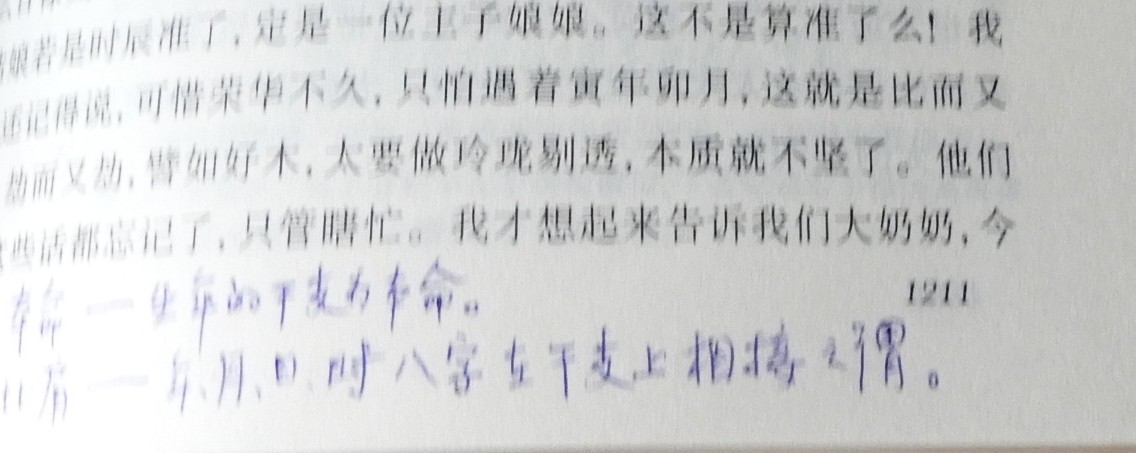 娘若是时辰准了,定是一位主子娘娘。这不是算准了么!我
还记得说,可惜荣华不久,只怕遇着寅年卯月,这就是比而又
劫而又劫,譬如好木,太要做玲珑剔透,本质就不坚了。他们
些话都忘记了,只管瞎忙。我才想起来告诉我们大奶奶,今
1211
本命 — 生年的干支为本命。
— 年、月、日、时八字在干支上相接之谓。